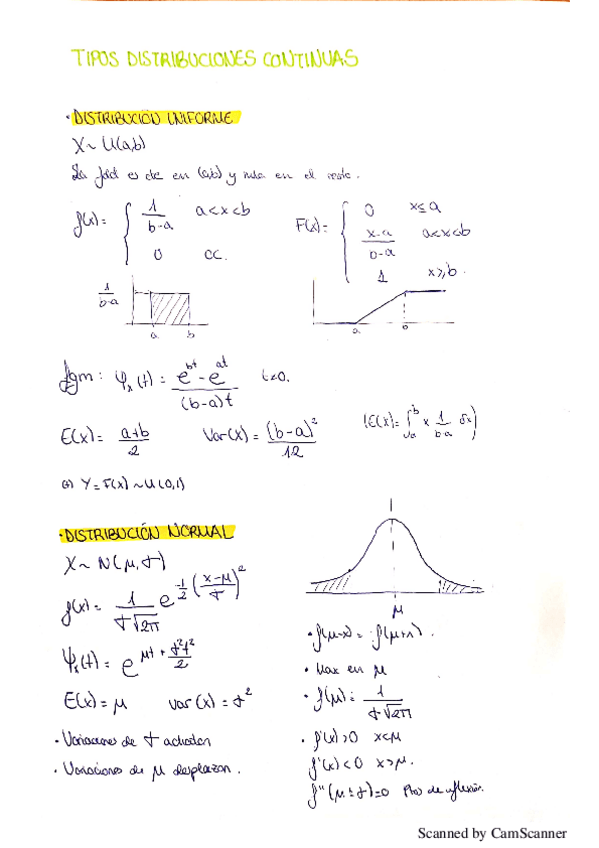 TIPOS DISTRIBUCIONES CONTINUAS
· DISTRIBUCIÓN UNIFORME
X ~ U(a,b)
La fdd es cte en (a,b) y nula en el resto.
f(x) = { 1/(b-a) a<x<b
0 cc.
F(x) = { 0 x≤a
(x-a)/(b-a) a<x<b
1 x≥b.
1/(b-a)
a b
a b
fgm: φx(t) = (e^bt - e^at)/((b-a)t) t≠0.
E(x) = (a+b)/2 Var(x) = (b-a)²/12 (E(x) = ∫_a^b x 1/(b-a) dx)
(*) Y = F(x) ~ U(0,1)
· DISTRIBUCIÓN NORMAL
X ~ N(μ, σ)
f(x) = 1/(σ√2π) e^(-1/2 ((x-μ)/σ)²)
φx(t) = e^(μt + σ²t²/2)
E(x) = μ var(x) = σ²
· Variaciones de σ achatan
· Variaciones de μ desplazan.
μ
· f(μ-x) = f(μ+x).
· Max en μ
· f(μ) = 1/(σ√2π)
· f'(x) > 0 x<μ
f'(x) < 0 x>μ.
f''(μ ± σ) = 0 Ptos de inflexión.
Scanned by CamScanner